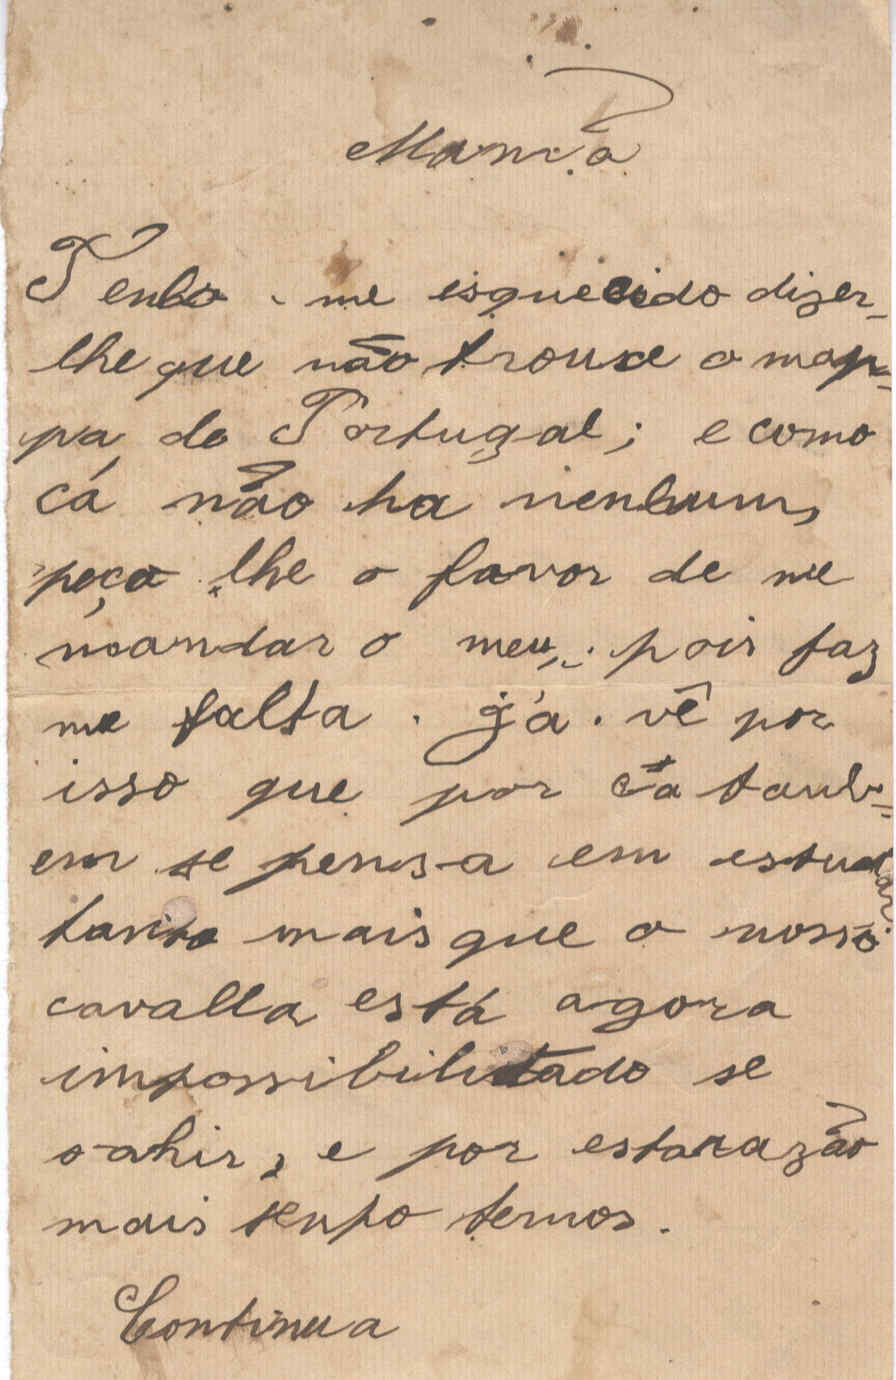 Mamã
Tenho-me esquecido dizer-
lhe que não trouxe o map-
pa de Portugal; e como
cá não ha nenhum,
peço-lhe o favor de me
mandar o meu, pois faz
me falta. Já vê por
isso que por cá tamb-
em se pensa em estudar.
tanto mais que o nosso
cavallo está agora
impossibilitado se
sahir, e por esta razão
mais tempo temos.
Continua